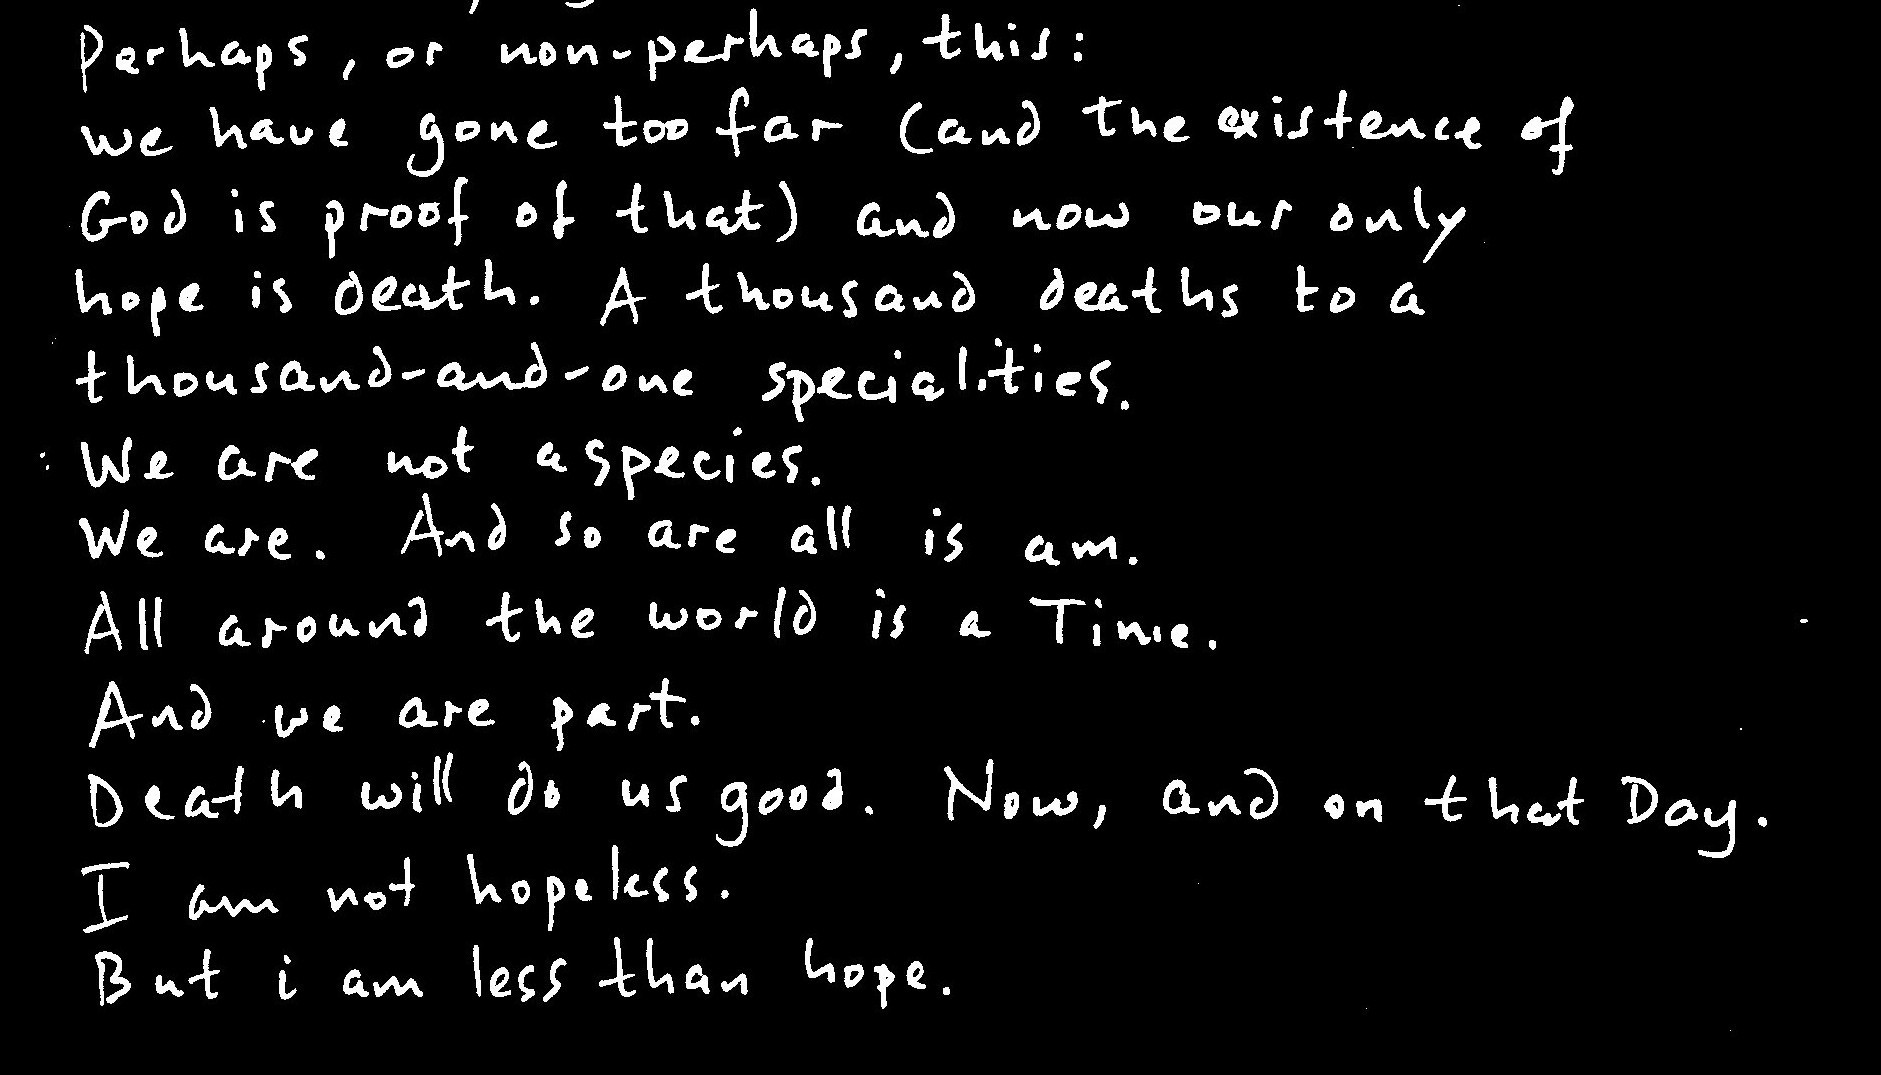 Perhaps, or non-perhaps, this:
we have gone too far (and the existence of
God is proof of that) and now our only
hope is death. A thousand deaths to a
thousand-and-one specialities.
We are not a species.
We are. And so are all is am.
All around the world is a Time.
And we are part.
Death will do us good. Now, and on that Day.
I am not hopeless.
But i am less than hope.